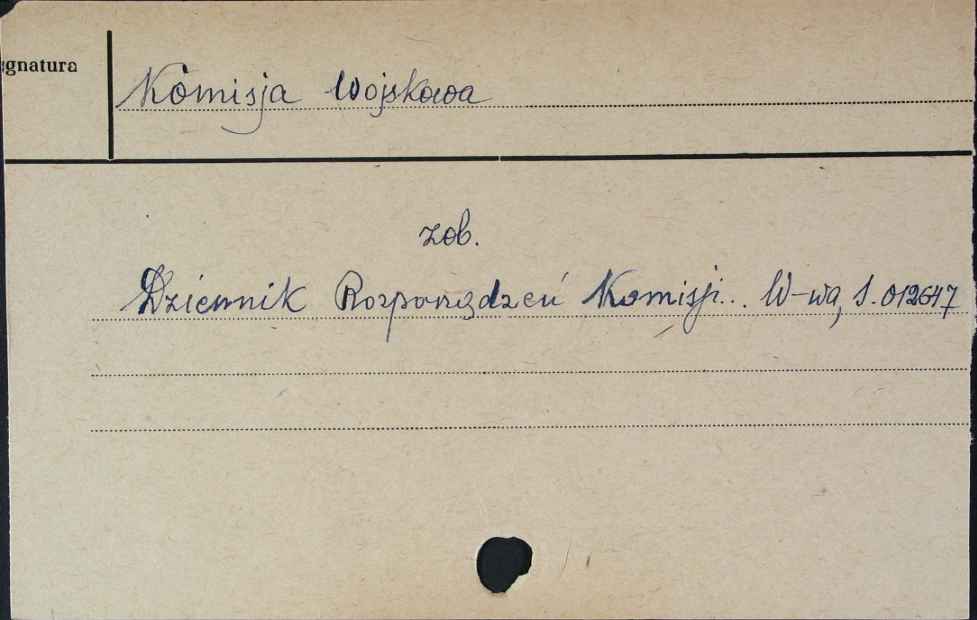 gnatura
Komisja Wojskowa
zob.
Dziennik Rozporządzeń Komisji... W-wa, S. 012647